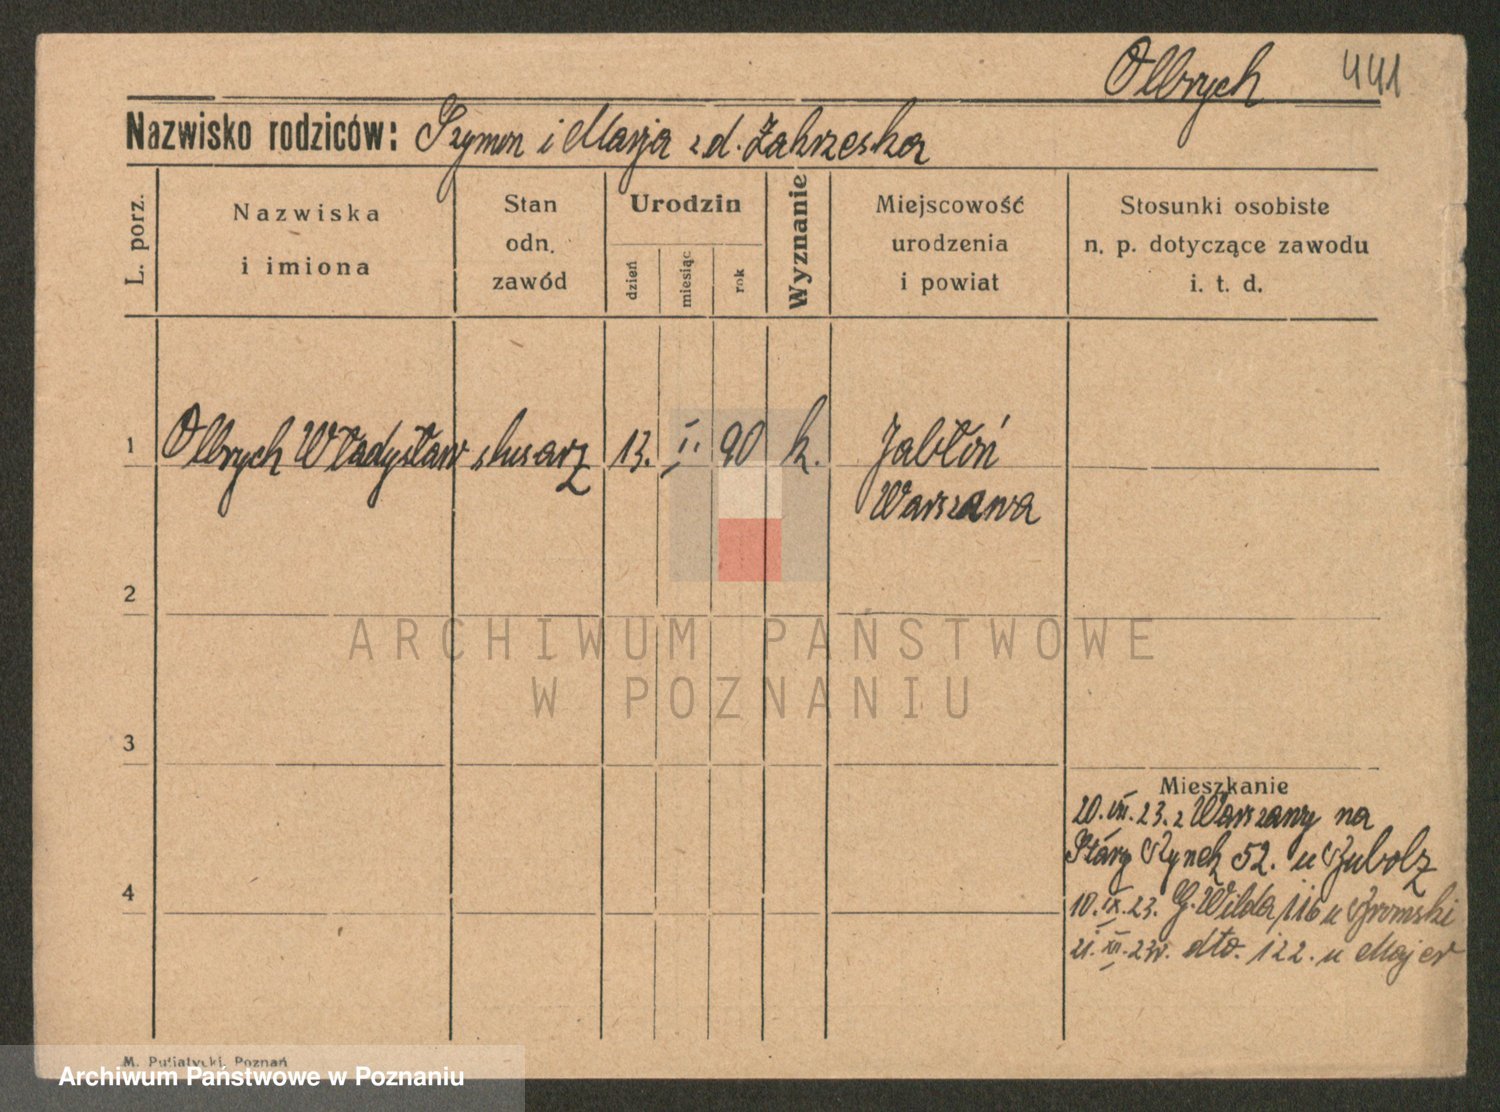 Olbrych 441
Nazwisko rodziców: Szymon i Marja z d. Zakrzeska
L. porz.
Nazwiska
i imiona
Stan
odn.
zawód
Urodzin
dzień
miesiąc
rok
Wyznanie
Miejscowość
urodzenia
i powiat
Stosunki osobiste
n. p. dotyczące zawodu
i. t. d.
1 Olbrych Władysław ślusarz 13. I. 90 k. Jabłoń
Warszawa
2
3
4
Mieszkanie
20. VII. 23. z Warszawy na
Stary Rynek 52. u
10. IX. 23. G. Wilda 116 u
21. XII. 23r. dto. 122. u Majer
ARCHIWUM PAŃSTWOWE
W POZNANIU
M. Putiatycki, Poznań
Archiwum Państwowe w Poznaniu